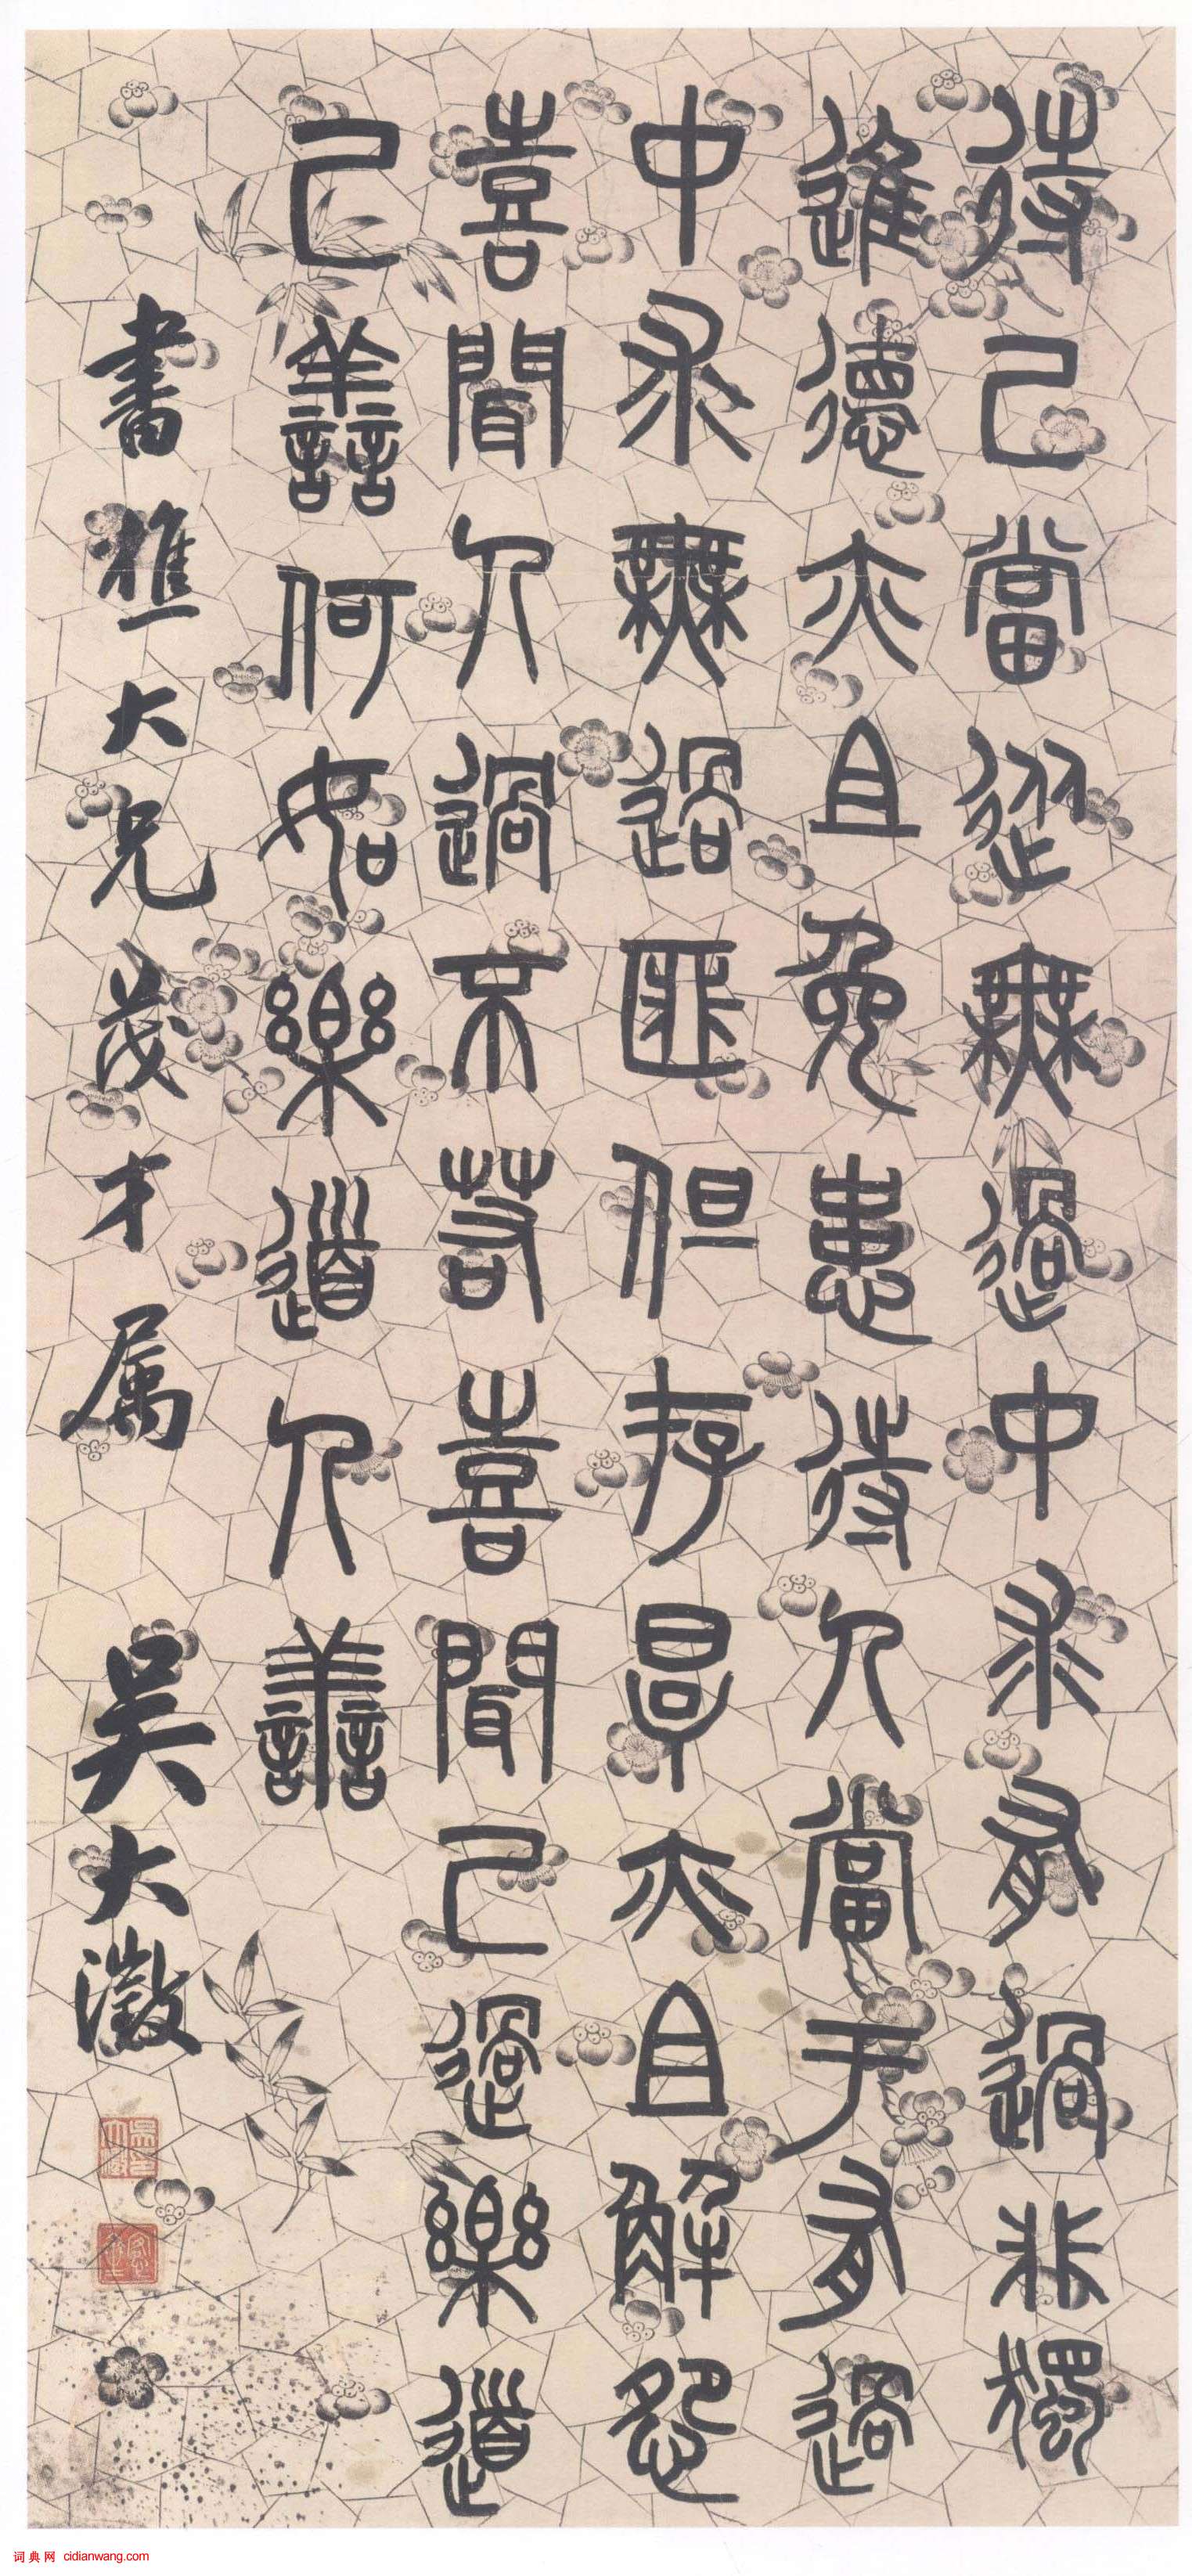 待己當從無過中求有過非獨
進德亦且免患待人當于有過
中求無過匪但存厚亦且解怨
喜聞人過不若喜聞己過樂道
己善何如樂道人善
書樵大兄茂才属 吳大澂
词典网 cidianwang.com